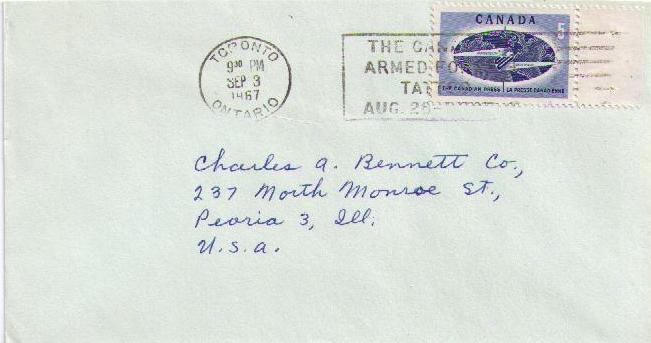 TORONTO
9³⁰ PM
SEP 3
1967
ONTARIO
THE
ARMED
AUG. 26-
CANADA
5
THE CANADIAN PRESS LA PRESSE CANADIENNE
Charles A. Bennett Co.,
237 North Monroe St.,
Peoria 3, Ill.
U.S.A.